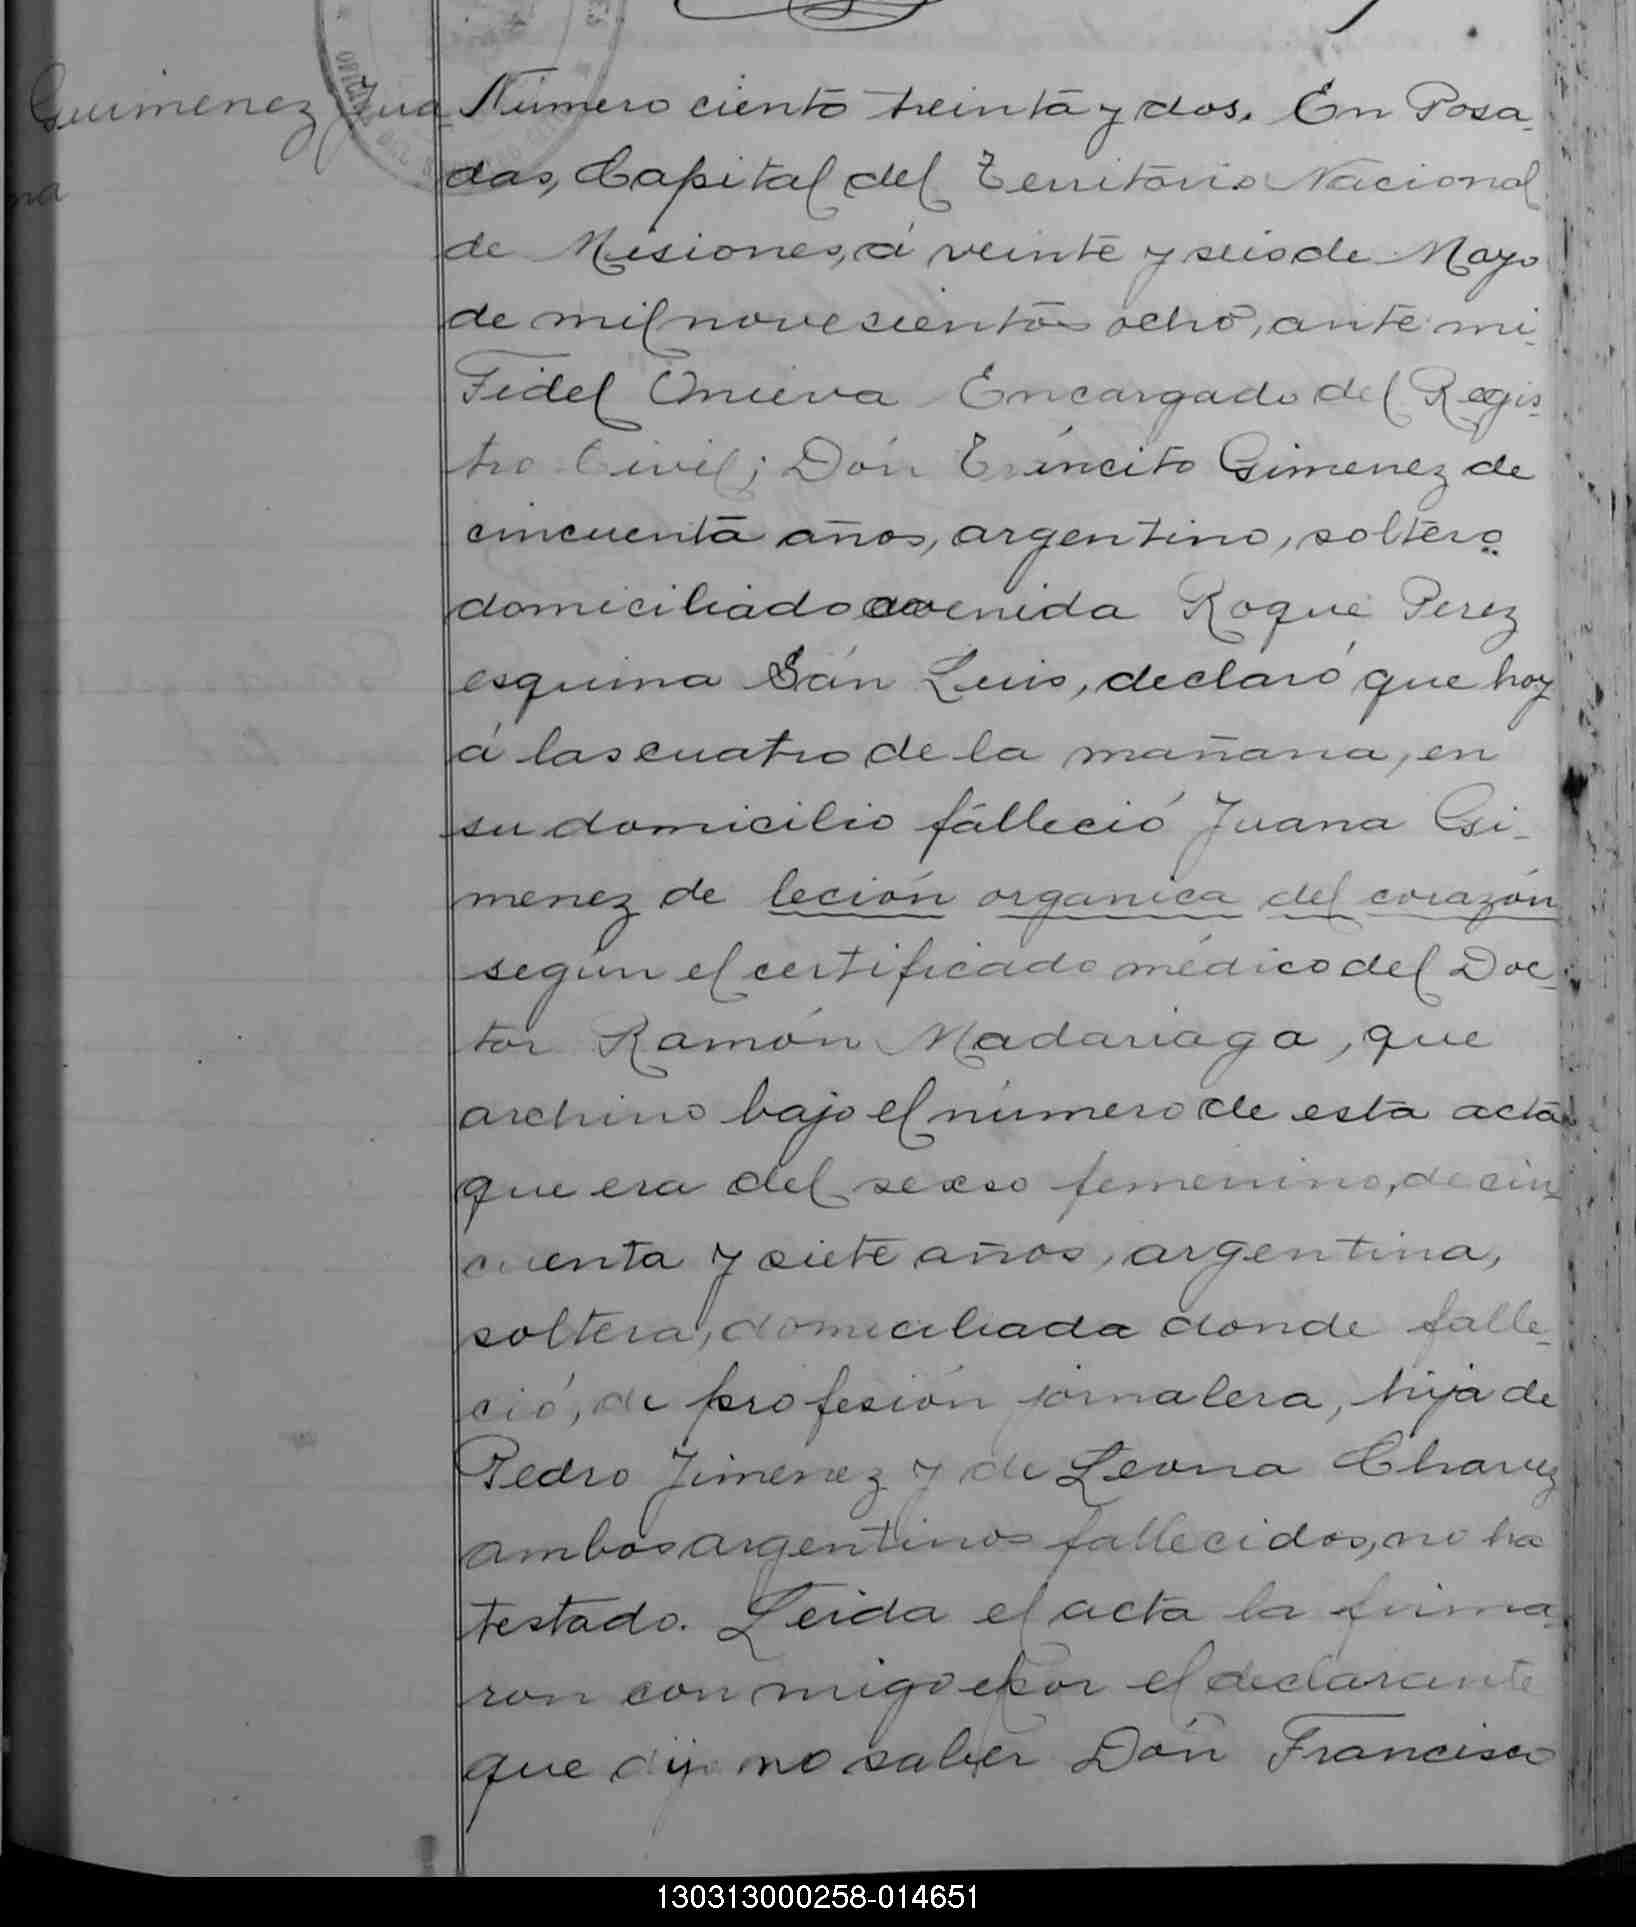 Guimenez Jua-
na
Número ciento treinta y dos. En Posa-
das, Capital del Territorio Nacional
de Misiones, á veinte y seis de Mayo
de mil novesientos ocho, ante mi
Fidel Onieva Encargado del Regis-
tro Civil; Dón Gimenez de
cincuenta años, argentino, soltero
domiciliado avenida Roque Perez
esquina Sán Luis, declaró que hoy
á las cuatro de la mañana, en
su domicilio fálleció Juana Gi-
menez de leción organica del corazón
según el certificado médico del Doc-
tor Ramón Madariaga, que
archivo bajo el número de esta acta
que era del sexso femenino, de cin-
cuenta y siete años, argentina,
soltera, domiciliada donde falle-
ció, de profesión jornalera, hija de
Pedro Jimenez y de Leona Chavez
ambos argentinos fallecidos, no ha
testado. Leida el acta la firma-
ron con migo por el declarante
que dijo no saber Dón Francisco
130313000258-014651